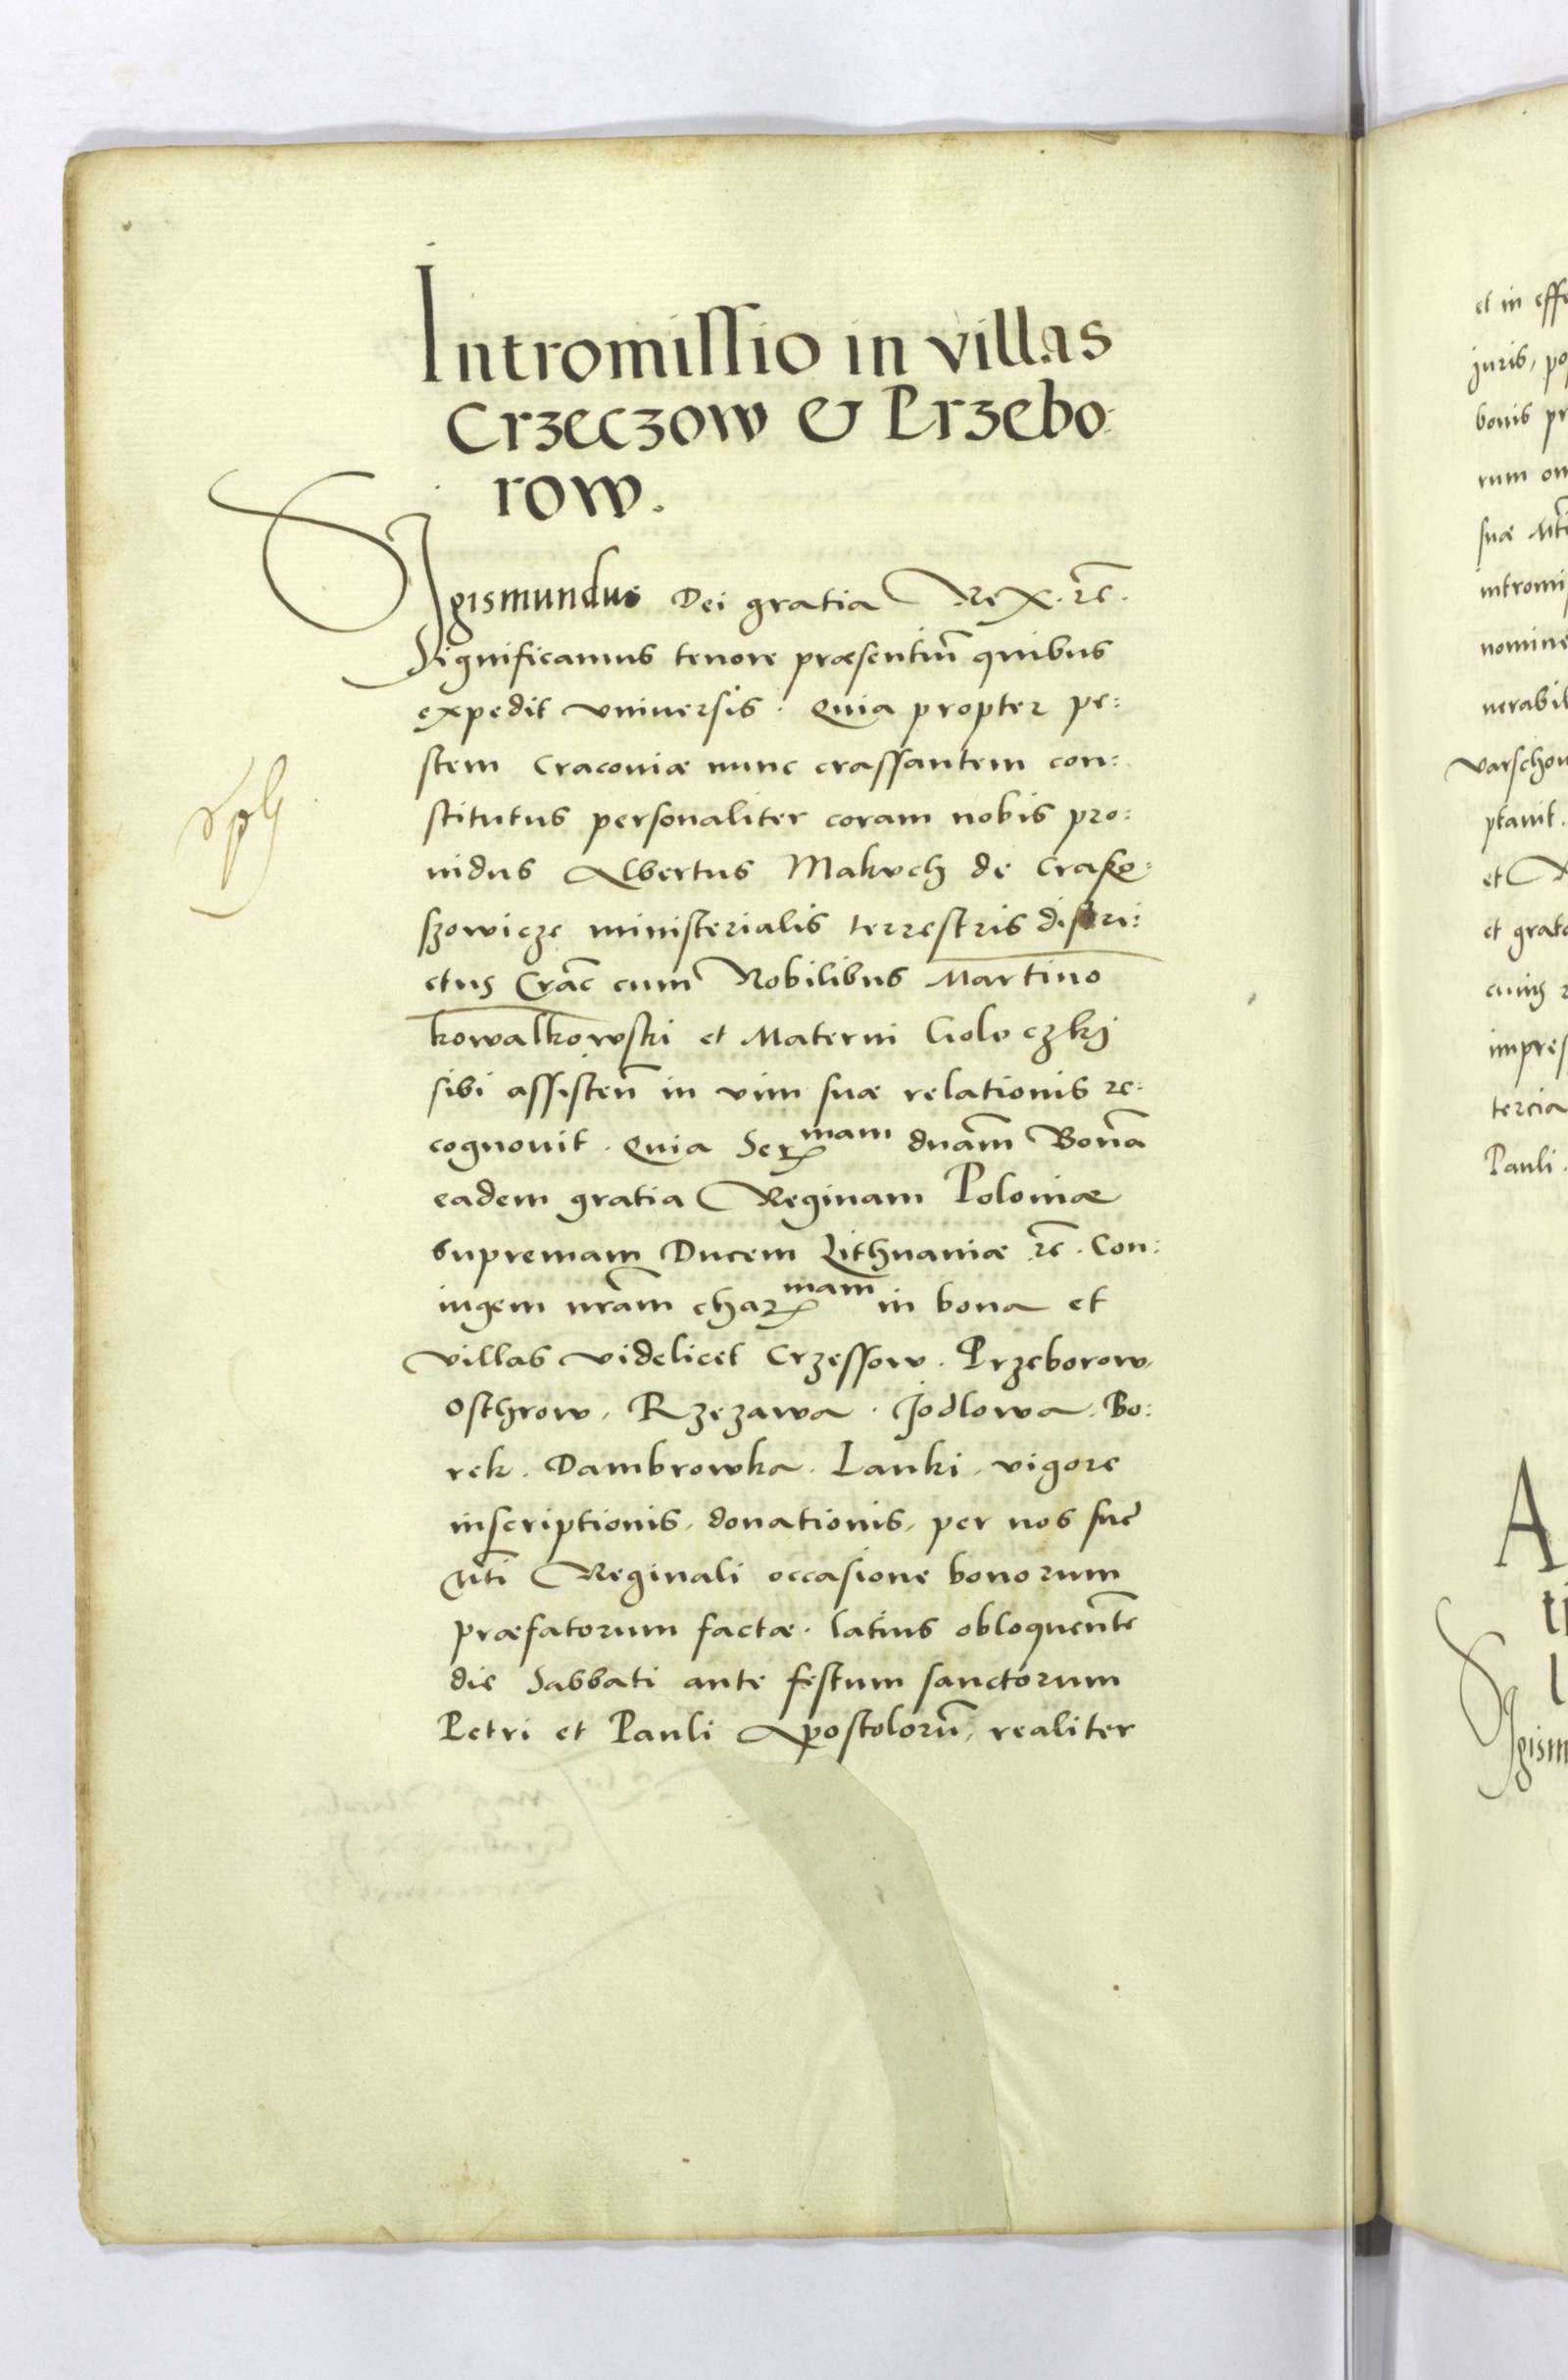 Intromissio in villas
Crzeczow & Przebo
row.
Sigismundus Dei gratia Rex. rc̃.
Significamus tenore præsentiũ quibus
expedit vniuersis. Quia propter pe:
stem Craconiæ nunc crassantem con:
stitutus personaliter coram nobis pro:
uidus Albertus Makuch de Crasko:
szowicze ministerialis terrestris distri:
ctus Crac̃ cum Nobilibus Martino
kowalkowski et Materni Goluczki
sibi assisteñ in vim suæ relationis re:
cognouit. Quia Ser mam dnam̃ Bona
eadem gratia Reginam Poloniæ
supremam Ducem Lithuaniæ rc̃. Con:
iugem nram̃ char mam in bona et
villas videlicet Crzessow. Przeborow.
Osthrow. Rzezawa. Jodlowa. Bo:
rek. Dambrowka. Lanki. vigore
inscriptionis, donationis, per nos sue
Mti Reginali occasione bonorum
præfatorum factæ. latius obloquen̄te
die Sabbati ante festum sanctorum
Petri et Pauli Apostolorũ, realiter
et in eff
juris, po
bonis pr
rum om
suæ Mt
intromi
nomine
nerabil
varschou
ptauit.
et
et grat
cuius
impres
tercia
Pauli.
A
ti
l
Sigism